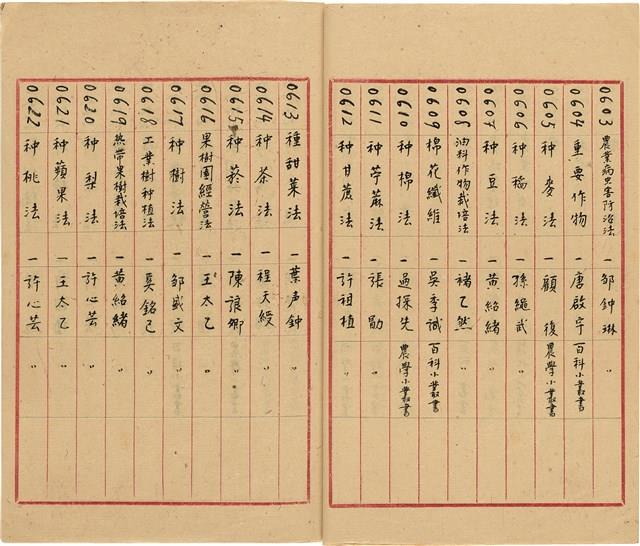 0603 農業病虫害防治法 一 鄒鍾琳
0604 重要作物 一 唐啟宇 百科小叢書
0605 种麥法 一 顧復 農學小叢書
0606 种稻法 一 孫繩武 〃
0607 种豆法 一 黃紹緒 〃
0608 油料作物栽培法 一 褚乙然 〃
0609 棉花纖維 一 吳季誠 百科小叢書
0610 种棉法 一 過探先 農學小叢書
0611 种苧蔴法 一 張勖 〃
0612 种甘蔗法 一 許祖植 〃
0613 種甜菜法 一 葉声鐘
0614 种茶法 一 程天綬 〃
0615 种菸法 一 陳諒卿 〃
0616 果樹園經營法 一 王太乙 〃
0617 种樹法 一 鄒盛文 〃
0618 工業樹种植法 一 奚銘已 〃
0619 熱帶果樹栽培法 一 黃紹緒 〃
0620 种梨法 一 許心芸 〃
0621 种蘋果法 一 王太乙 〃
0622 种桃法 一 許心芸 〃